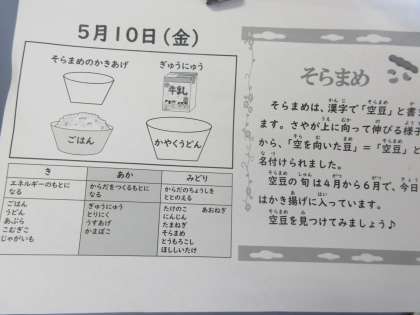 5月10日(金)
そらまめのかきあげ
ぎゅうにゅう
牛乳
ごはん
かやくうどん
き
あか
みどり
エネルギーのもとに
なる
からだをつくるもとに
なる
からだのちょうしを
ととのえる
ごはん
うどん
あぶら
こむぎこ
じゃがいも
ぎゅうにゅう
とりにく
うすあげ
かまぼこ
たけのこ あおねぎ
にんじん
たまねぎ
そらまめ
とうもろこし
ほししいたけ
そらまめ
そらまめは、漢字で「空豆」と書き
ます。さやが上に向って伸びる様子
から、「空を向いた豆」=「空豆」と
名付けられました。
空豆の旬は4月から6月で、今日
はかき揚げに入っています。
空豆を見つけてみましょう♪